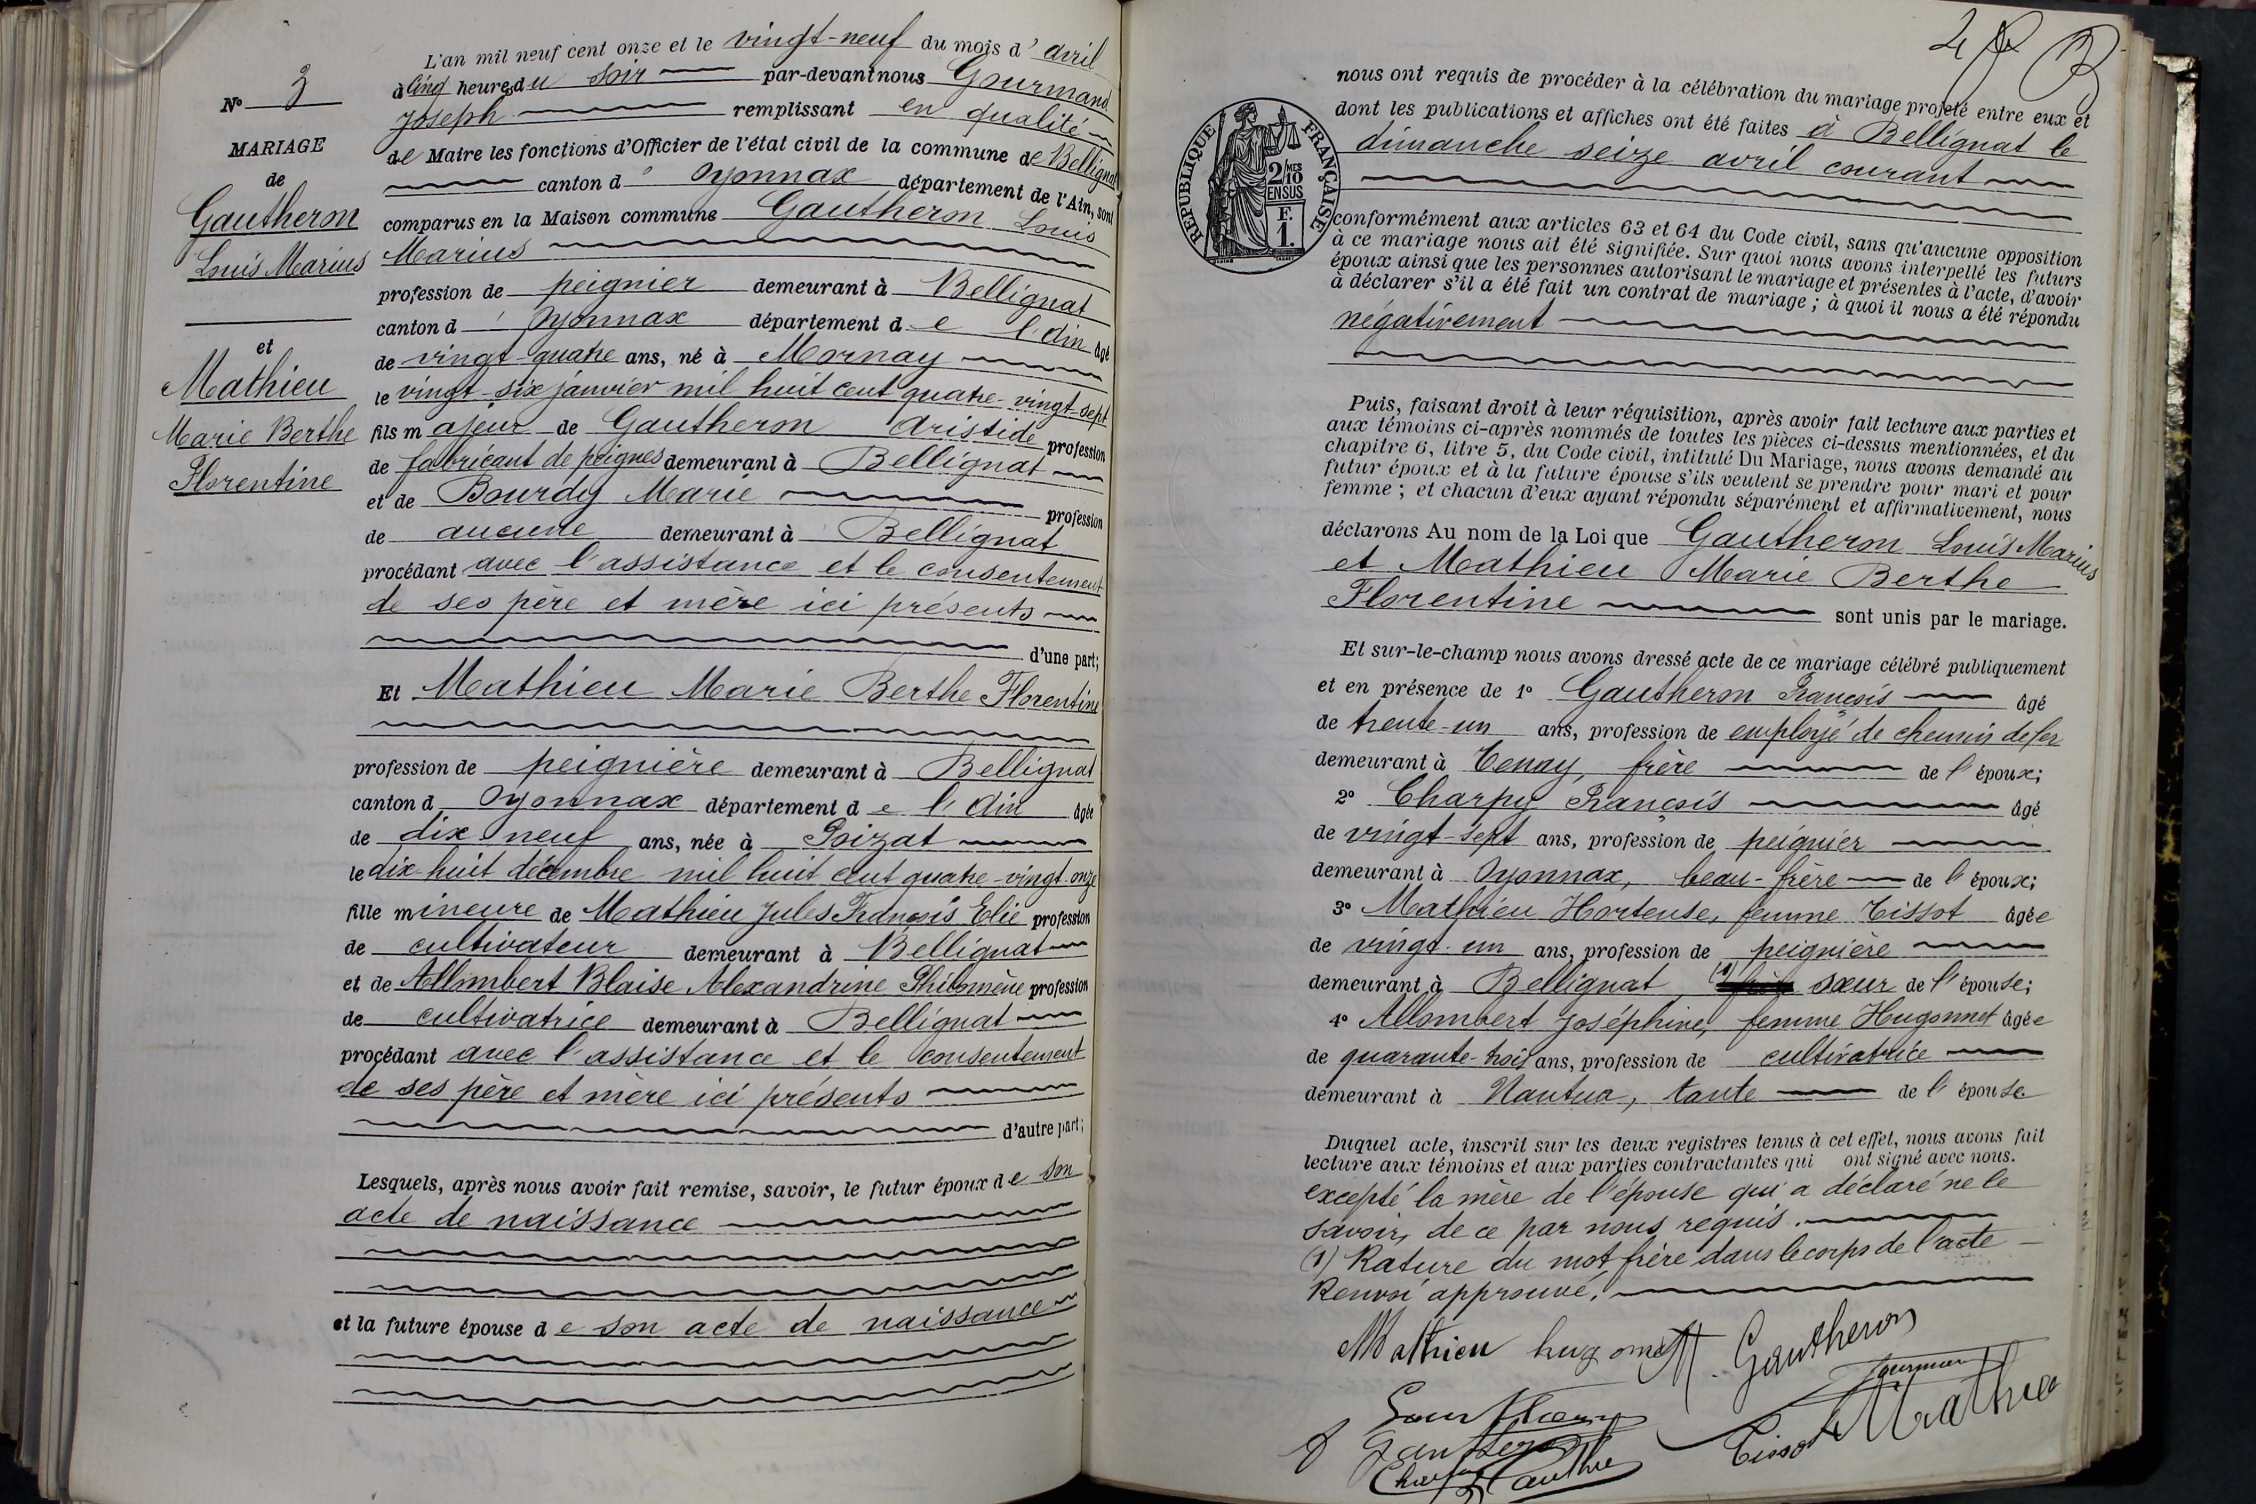 L'an mil neuf cent onze et le vingt-neuf du mois d'avril
à cinq heures du soir par-devant nous Gourmand
Joseph remplissant en qualité
de Maire les fonctions d'Officier de l'état civil de la commune de Bellignat
canton d'Oyonnax département de l'Ain, sont
comparus en la Maison commune Gautheron Louis
Marius
profession de peignier demeurant à Bellignat
canton d'Oyonnax département de l'Ain âgé
de vingt-quatre ans, né à Mornay
le vingt-six janvier mil huit cent quatre-vingt-sept
fils majeur de Gautheron Aristide profession
de fabricant de peignes demeurant à Bellignat
et de Bourdy Marie profession
de aucune demeurant à Bellignat
procédant avec l'assistance et le consentement
de ses père et mère ici présents
d'une part;
Et Mathieu Marie Berthe Florentine
profession de peignière demeurant à Bellignat
canton d Oyonnax département de l'Ain âgée
de dix neuf ans, née à Poizat
le dix-huit décembre mil huit cent quatre-vingt-onze
fille mineure de Mathieu Jules François Elie profession
de cultivateur demeurant à Bellignat
et de Allombert Blaise Alexandrine Philomène profession
de cultivatrice demeurant à Bellignat
procédant avec l'assistance et le consentement
de ses père et mère ici présents
d'autre part;
Lesquels, après nous avoir fait remise, savoir, le futur époux de son
acte de naissance
et la future épouse de son acte de naissance
N° 3
MARIAGE
de
Gautheron
Louis Marius
et
Mathieu
Marie Berthe
Florentine
nous ont requis de procéder à la célébration du mariage projeté entre eux et
dont les publications et affiches ont été faites à Bellignat le
dimanche seize avril courant
RÉPUBLIQUE FRANÇAISE
2/10MES
EN SUS
F.
1.
conformément aux articles 63 et 64 du Code civil, sans qu'aucune opposition
à ce mariage nous ait été signifiée. Sur quoi nous avons interpellé les futurs
époux ainsi que les personnes autorisant le mariage et présentes à l'acte, d'avoir
à déclarer s'il a été fait un contrat de mariage; à quoi il nous a été répondu
négativement
Puis, faisant droit à leur réquisition, après avoir fait lecture aux parties et
aux témoins ci-après nommés de toutes les pièces ci-dessus mentionnées, et du
chapitre 6, titre 5, du Code civil, intitulé Du Mariage, nous avons demandé au
futur époux et à la future épouse s'ils veulent se prendre pour mari et pour
femme; et chacun d'eux ayant répondu séparément et affirmativement, nous
déclarons Au nom de la Loi que Gautheron Louis Marius
et Mathieu Marie Berthe
Florentine sont unis par le mariage.
Et sur-le-champ nous avons dressé acte de ce mariage célébré publiquement
et en présence de 1° Gautheron François âgé
de trente-un ans, profession de employé de chemin de fer
demeurant à Tenay, frère de l'époux;
2° Charpy François âgé
de vingt-sept ans, profession de peignier
demeurant à Oyonnax, beau-frère de l'époux;
3° Mathieu Hortense, femme Tissot âgée
de vingt-un ans, profession de peignière
demeurant à Bellignat (1) frère sœur de l'épouse;
4° Allombert Joséphine, femme Hugonnet âgée
de quarante-trois ans, profession de cultivatrice
demeurant à Nantua, tante de l'épouse
Duquel acte, inscrit sur les deux registres tenus à cet effet, nous avons fait
lecture aux témoins et aux parties contractantes qui ont signé avec nous.
excepté la mère de l'épouse qui a déclaré ne le
savoir, de ce par nous requis.
(1) Rature du mot frère dans le corps de l'acte
Renvoi approuvé.
Mathieu M. Gautheron
Tissot Mathieu
Gautheron